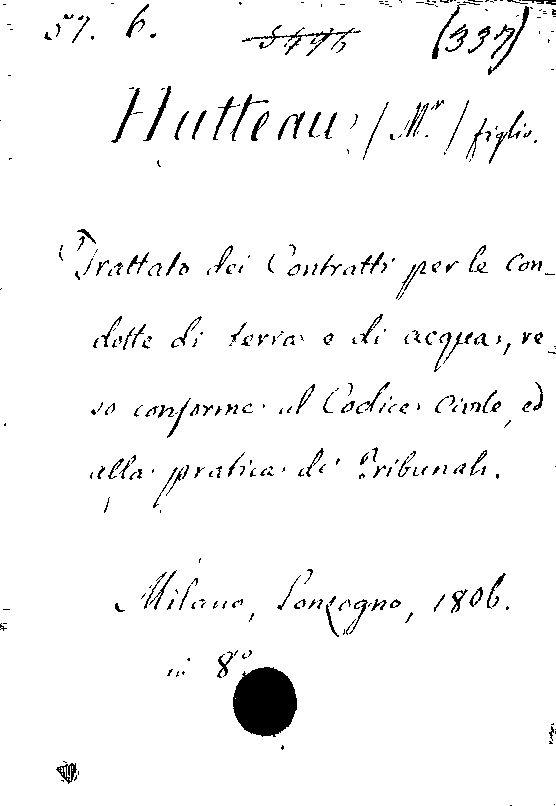 57. 6. 5496 (337)
Hutteau (M.r) figlio.
Trattato dei Contratti per le con_
dotte di terra e di acqua, re_
so conforme al Codice Civile, ed
alla pratica dei Tribunali.
Milano, Sonzogno, 1806.
in 8.º